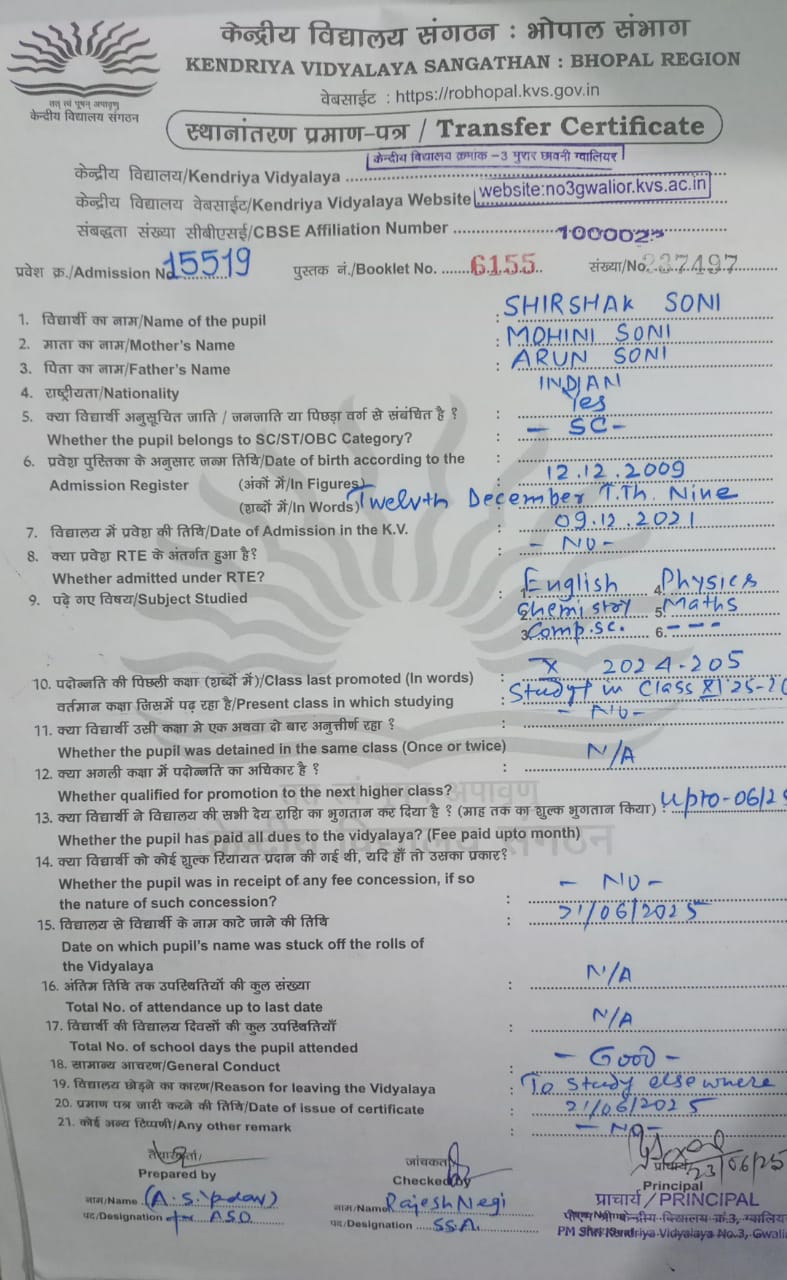 केन्द्रीय विद्यालय संगठन : भोपाल संभाग
KENDRIYA VIDYALAYA SANGATHAN : BHOPAL REGION
तत् त्वं पूषन् अपावृणु
केन्द्रीय विद्यालय संगठन
वेबसाईट : https://robhopal.kvs.gov.in
स्थानांतरण प्रमाण-पत्र / Transfer Certificate
केन्द्रीय विद्यालय/Kendriya Vidyalaya केन्द्रीय विद्यालय क्रमांक -3 मुरार छावनी ग्वालियर
केन्द्रीय विद्यालय वेबसाईट/Kendriya Vidyalaya Website website:no3gwalior.kvs.ac.in
संबद्धता संख्या सीबीएसई/CBSE Affiliation Number 1000025
प्रवेश क्र./Admission No 15519 पुस्तक नं./Booklet No. 6155 संख्या/No. 237497
1. विद्यार्थी का नाम/Name of the pupil : SHIRSHAK SONI
2. माता का नाम/Mother's Name : MOHINI SONI
3. पिता का नाम/Father's Name : ARUN SONI
4. राष्ट्रीयता/Nationality INDIAN
5. क्या विद्यार्थी अनुसूचित जाति / जनजाति या पिछड़ा वर्ग से संबंधित है ? : Yes
Whether the pupil belongs to SC/ST/OBC Category? : - SC -
6. प्रवेश पुस्तिका के अनुसार जन्म तिथि/Date of birth according to the :
Admission Register (अंकों में/In Figures) 12.12.2009
(शब्दों में/In Words) Twelvth December T.Th. Nine
7. विद्यालय में प्रवेश की तिथि/Date of Admission in the K.V. : 09.12.2021
8. क्या प्रवेश RTE के अंतर्गत हुआ है? : - NO -
Whether admitted under RTE?
9. पढ़े गए विषय/Subject Studied : 1. English 4. Physics
2. Chemistry 5. Maths
3. Comp.sc. 6. - - -
10. पदोन्नति की पिछली कक्षा (शब्दों में)/Class last promoted (In words) : X 2024-205
वर्तमान कक्षा जिसमें पढ़ रहा है/Present class in which studying : Study in Class XI 25-2
11. क्या विद्यार्थी उसी कक्षा मे एक अथवा दो बार अनुत्तीर्ण रहा ? : - NO -
Whether the pupil was detained in the same class (Once or twice)
12. क्या अगली कक्षा में पदोन्नति का अधिकार है ? : N/A
Whether qualified for promotion to the next higher class?
13. क्या विद्यार्थी ने विद्यालय की सभी देय राशि का भुगतान कर दिया है ? (माह तक का शुल्क भुगतान किया) : Upto-06/2
Whether the pupil has paid all dues to the vidyalaya? (Fee paid upto month)
14. क्या विद्यार्थी को कोई शुल्क रियायत प्रदान की गई थी, यदि हाँ तो उसका प्रकार?
Whether the pupil was in receipt of any fee concession, if so
the nature of such concession? : - NO -
15. विद्यालय से विद्यार्थी के नाम काटे जाने की तिथि : 21/06/2025
Date on which pupil's name was stuck off the rolls of
the Vidyalaya
16. अंतिम तिथि तक उपस्थितियों की कुल संख्या : N/A
Total No. of attendance up to last date
17. विद्यार्थी की विद्यालय दिवसों की कुल उपस्थितियाँ : N/A
Total No. of school days the pupil attended
18. सामान्य आचरण/General Conduct : - GOOD -
19. विद्यालय छोड़ने का कारण/Reason for leaving the Vidyalaya : To study elsewhere
20. प्रमाण पत्र जारी करने की तिथि/Date of issue of certificate : 21/06/2025
21. कोई अन्य टिप्पणी/Any other remark : - NO -
तैयारकर्ता/ जांचकर्ता प्राचार्य 23/06/25
Prepared by Checked by Principal
नाम/Name (A.S. Yadav) नाम/Name Rajesh Negi प्राचार्य / PRINCIPAL
पद/Designation ASO पद/Designation SSA. पीएम श्री केन्द्रीय विद्यालय क्र.3, ग्वालिय
PM Shri Kendriya Vidyalaya No.3, Gwali